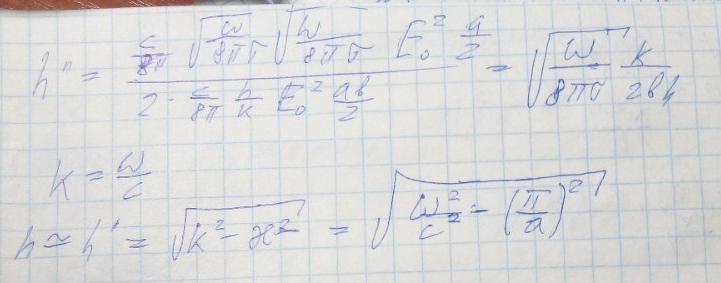 h'' = \frac{\frac{c}{8π} \sqrt{\frac{ω}{8πσ}} \sqrt{\frac{ω}{8πσ}} E_0^2 \frac{a}{2}}{2 · \frac{c}{8π} \frac{h}{k} E_0^2 \frac{ab}{2}} = \sqrt{\frac{ω}{8πσ}} \frac{k}{2bh}
k = \frac{ω}{c}
h ≃ h' = \sqrt{k^2 - æ^2} = \sqrt{\frac{ω^2}{c^2} - (\frac{π}{a})^2}